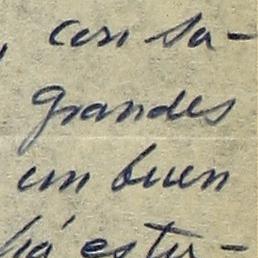 , con sa-
grandes
un buen
há estu-